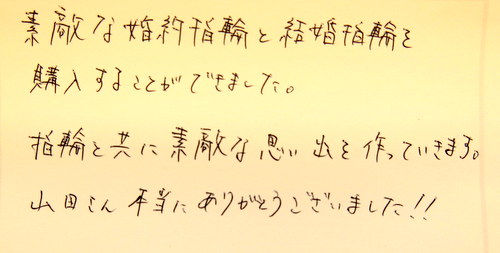 素敵な婚約指輪と結婚指輪を
購入することができました。
指輪と共に素敵な思い出を作っていきます。
山田さん本当にありがとうございました!!